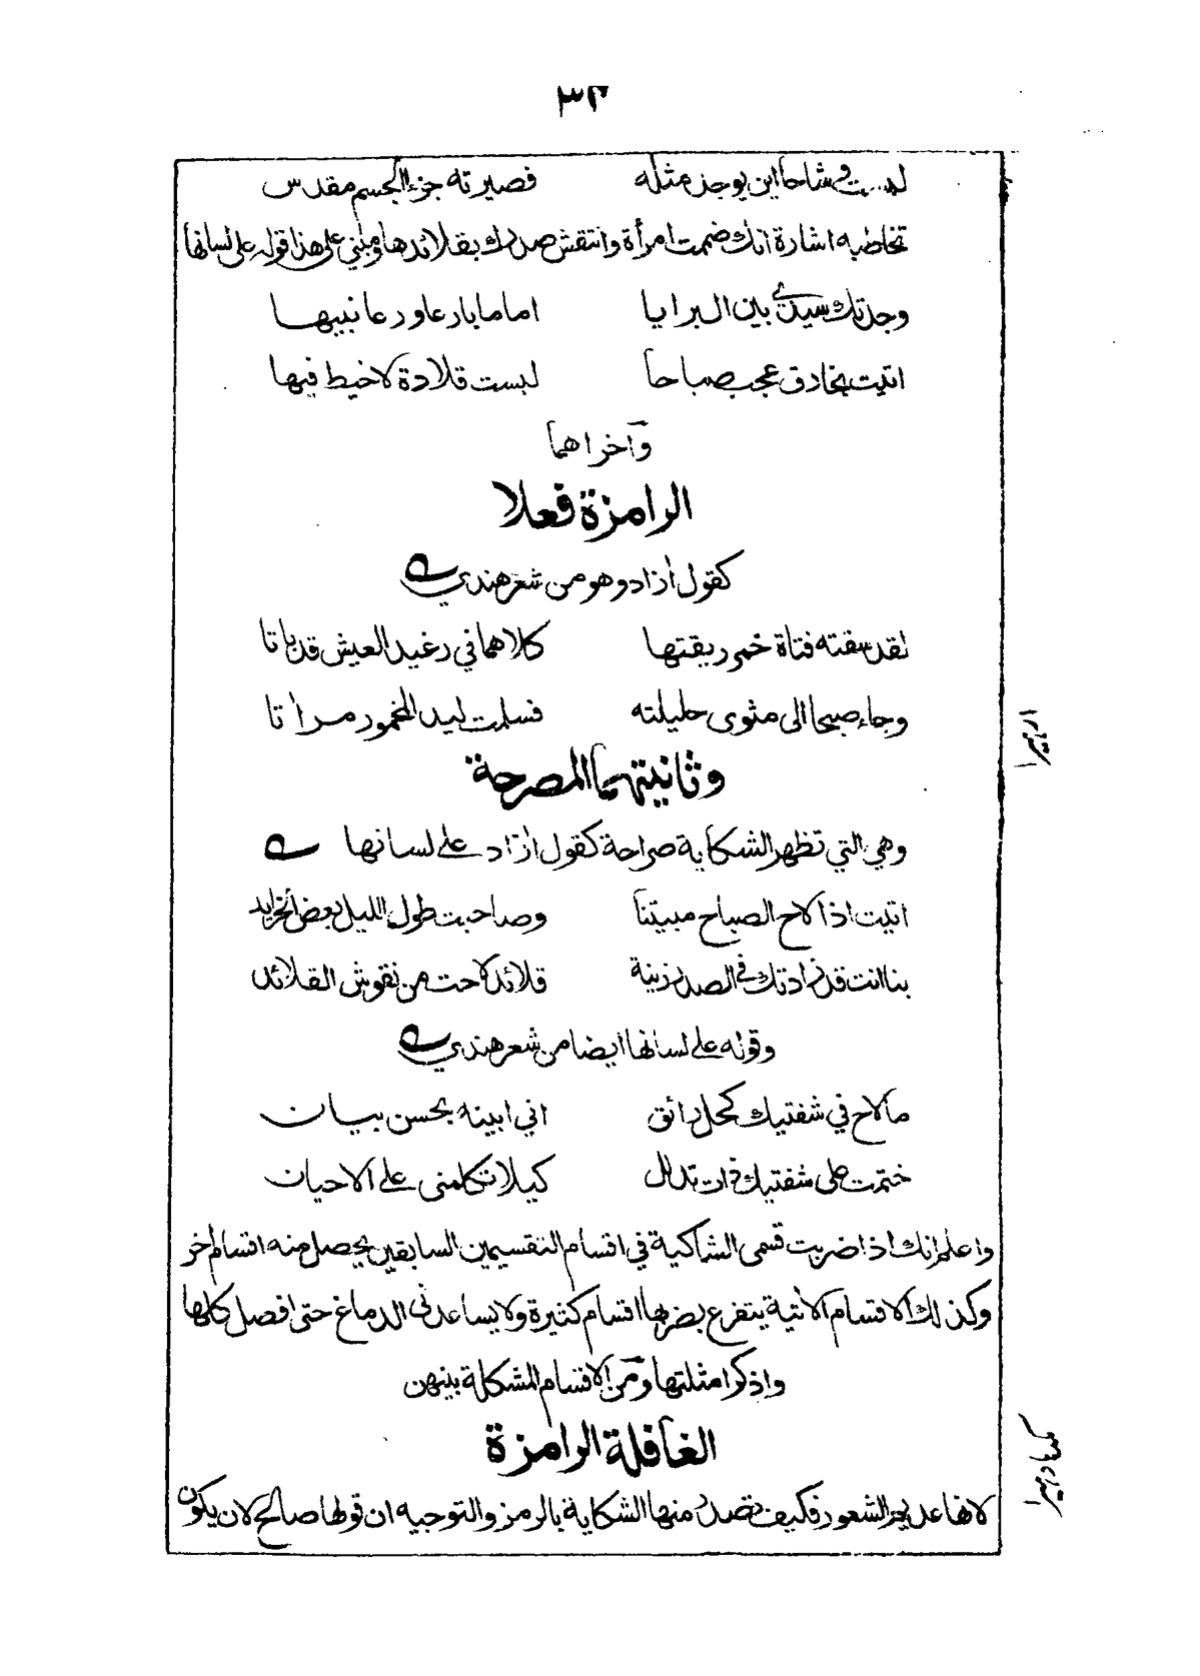 ٣٢
لبست وشاحا اين يوجد مثله فصيرته جزءا لجسم مقدس
تخاطبه اشارة انك ضممت امرأة وانتقش صدرك بقلائدها ومبني على هذا قوله على لسانها
وجدتك سيدي بين البرايا اماما بارعا ورعا نبيها
اتيت بخارق عجب صباحا لبست قلادة لا خيط فيها
وآخراهما
الرامزة فعلا
كقول آزاد وهو من شعر هندي
لقد سقته فتاة خمر ريقتها كلاهما في رغيد العيش قد باتا
وجاء صبحا الى مثوى حليلته فسلمت ليد المخمور مرأتا
وثانيتهما المصرحة
وهي التي تظهر الشكاية صراحة كقول آزاد على لسانها
اتيت اذا لاح الصباح مبيتنا وصاحبت طول الليل بعض الخرايد
بنا انت قد زادتك في الصدر زينة قلائد لاحت من نقوش القلائد
وقوله على لسانها ايضا من شعر هندي
ما لاح في شفتيك كحل رائق اني ابينه بحسن بيان
ختمت على شفتيك ذات تدلل كيلا تكلمني على الاحيان
واعلم انك اذا ضربت قسمى الشاكية في اقسام التقسيمين السابقين يحصل منه اقسام اخر
وكذلك الاقسام الآتية يتفرع بضربها اقسام كثيرة ولا يساعدنى الدماغ حتى افصل كلها
واذكر امثلتها ومن الاقسام المشكلة بينهن
الغافلة الرامزة
لانها عديم الشعور فكيف تصدر منها الشكاية بالرمز والتوجيه ان قولها صالح لان يكون